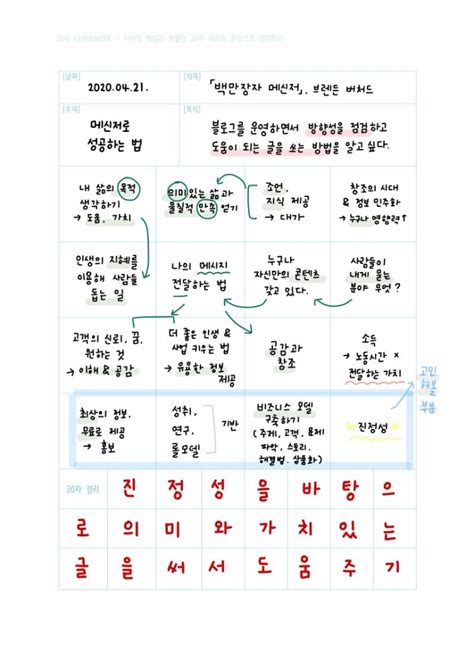 20자 FRAMEWORK - 지식의 핵심과 본질만 20자 내외의 문장으로 정리하라
[날짜]
2020.04.21.
[제목]
「백만장자 메신저」, 브렌든 버처드
[주제]
메신저로
성공하는 법
[목적]
블로그를 운영하면서 방향성을 점검하고
도움이 되는 글을 쓰는 방법을 알고 싶다.
내 삶의 목적
생각하기
→ 도움, 가치
의미있는 삶과
물질적 만족 얻기
조언,
지식 제공
→ 대가
창조의 시대
& 정보 민주화
→ 누구나 영향력↑
인생의 지혜를
이용해 사람들
돕는 일
나의 메시지
전달하는 법
누구나
자신만의 콘텐츠
갖고 있다.
사람들이
내게 묻는
분야 무엇?
고객의 신뢰, 꿈,
원하는 것
→ 이해 & 공감
더 좋은 인생 &
사업 키우는 법
→ 유용한 정보
제공
공감과
창조
소득
→ 노동시간 ×
전달하는 가치
고민
해볼
부분
최상의 정보,
무료로 제공
→ 홍보
성취,
연구,
롤모델
기반
비즈니스 모델
구축하기
(주제, 고객, 문제
파악, 스토리,
해결법, 상품화)
진정성
20자 정리
진정성을바탕으
로의미와가치있는
글을써서도움주기